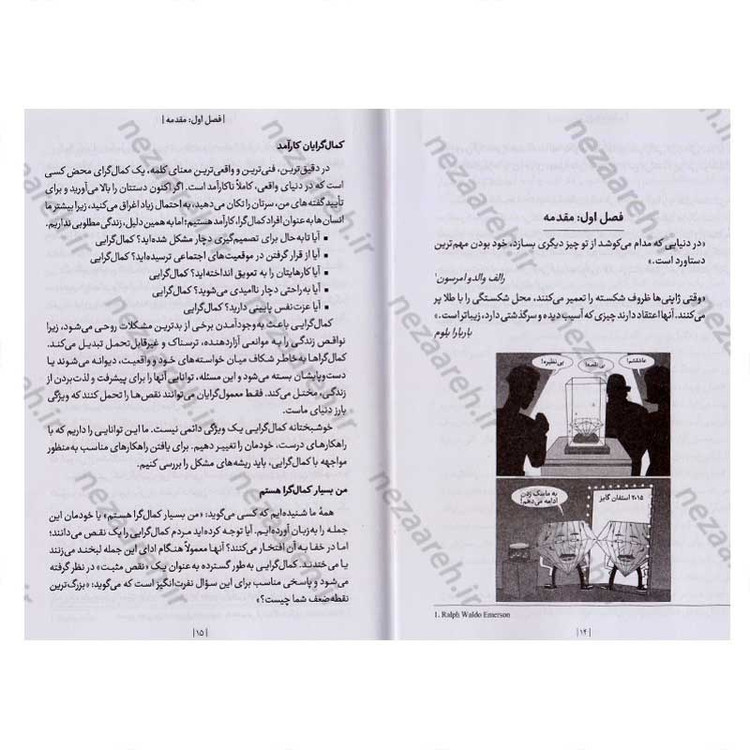 فصل اول: مقدمه
«در دنیایی که مدام می‌کوشد از تو چیز دیگری بسازد، خود بودن مهم‌ترین
دستاورد است.»
رالف والدو امرسون¹
«وقتی ژاپنی‌ها ظروف شکسته را تعمیر می‌کنند، محل شکستگی را با طلا پر
می‌کنند. آنها اعتقاد دارند چیزی که آسیب دیده و سرگذشتی دارد، زیباتر است.»
باربارا بلوم
عاشقشم!
بی‌نقصه!
بی‌نظیره!
به ماسک زدن
ادامه می‌دهم!
۲۰۱۵ استفان گایز
1. Ralph Waldo Emerson
|۱۴|
|فصل اول: مقدمه|
کمال‌گرایان کارآمد
در دقیق‌ترین، فنی‌ترین و واقعی‌ترین معنای کلمه، یک کمال‌گرای محض کسی
است که در دنیای واقعی، کاملاً ناکارآمد است. اگر اکنون دستتان را بالا می‌آورید و برای
تأیید گفته‌های من، سرتان را تکان می‌دهید، به احتمال زیاد اغراق می‌کنید، زیرا بیشتر ما
انسان‌ها به عنوان افراد کمال‌گرا، کارآمد هستیم؛ اما به همین دلیل، زندگی مطلوبی نداریم.
▪ آیا تابه‌حال برای تصمیم‌گیری دچار مشکل شده‌اید؟ کمال‌گرایی
▪ آیا از قرار گرفتن در موقعیت‌های اجتماعی ترسیده‌اید؟ کمال‌گرایی
▪ آیا کارهایتان را به تعویق انداخته‌اید؟ کمال‌گرایی
▪ آیا به‌راحتی دچار ناامیدی می‌شوید؟ کمال‌گرایی
▪ آیا عزت‌نفس پایینی دارید؟ کمال‌گرایی
کمال‌گرایی باعث به‌وجودآمدن برخی از بدترین مشکلات روحی می‌شود، زیرا
نواقص زندگی را به موانعی آزاردهنده، ترسناک و غیرقابل‌تحمل تبدیل می‌کند.
کمال‌گراها به‌خاطر شکاف میان خواسته‌های خود و واقعیت، دیوانه می‌شوند یا
دست‌وپایشان بسته می‌شود و این مسئله، توانایی آنها را برای پیشرفت و لذت‌بردن از
زندگی، مختل می‌کند. فقط معمول‌گرایان می‌توانند نقص‌ها را تحمل کنند که ویژگی
بارز دنیای ماست.
خوشبختانه کمال‌گرایی یک ویژگی دائمی نیست. ما این توانایی را داریم که با
راهکارهای درست، خودمان را تغییر دهیم. برای یافتن راهکارهای مناسب به‌منظور
مواجهه با کمال‌گرایی، باید ریشه‌های مشکل را بررسی کنیم.
من بسیار کمال‌گرا هستم
همهٔ ما شنیده‌ایم که کسی می‌گوید: «من بسیار کمال‌گرا هستم» یا خودمان این
جمله را به‌زبان آورده‌ایم. آیا توجه کرده‌اید مردم کمال‌گرایی را یک نقص می‌دانند؛
اما در خفا به آن افتخار می‌کنند؟ آنها معمولاً هنگام ادای این جمله لبخند می‌زنند
یا می‌خندند. کمال‌گرایی به‌طور گسترده به عنوان یک «نقص مثبت» در نظر گرفته
می‌شود و پاسخی مناسب برای این سؤال نفرت‌انگیز است که می‌گوید: «بزرگ‌ترین
نقطه‌ضعف شما چیست؟»
|۱۵|
nezaareh.ir